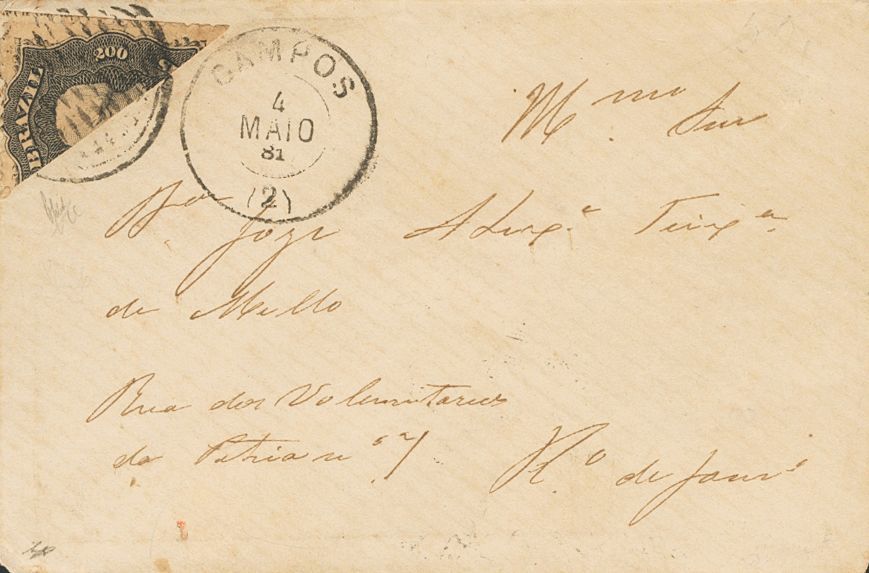 200
BRAZIL
CAMPOS
4
MAIO
81
(2)
Mmo Snr
Bom Joze Teixa
de Mello
Rua dos Voluntarios
da Patria no 7
Ro de Janro